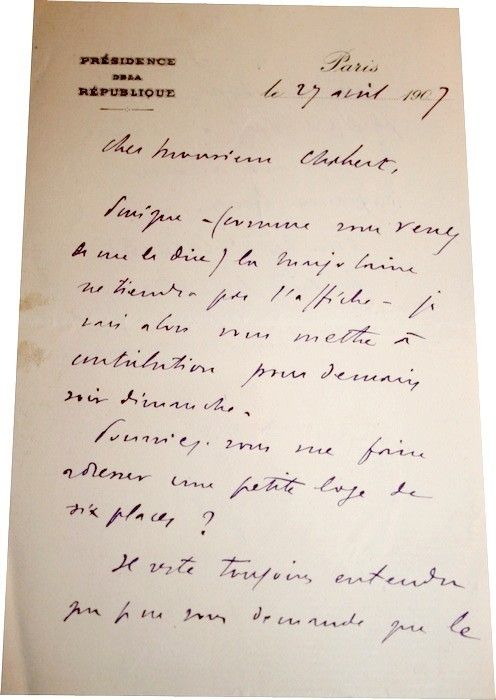 PRÉSIDENCE
DE LA
RÉPUBLIQUE
Paris
le 27 avril 1907
Cher Monsieur Chabert,
Puisque – (comme vous venez
de me le dire) la Marjolaine
ne tiendra pas l'affiche – je
vais alors vous mettre à
contribution pour demain
soir dimanche.
Pourriez-vous me faire
adresser une petite loge de
six places ?
Il reste toujours entendu
que je ne vous demande que le